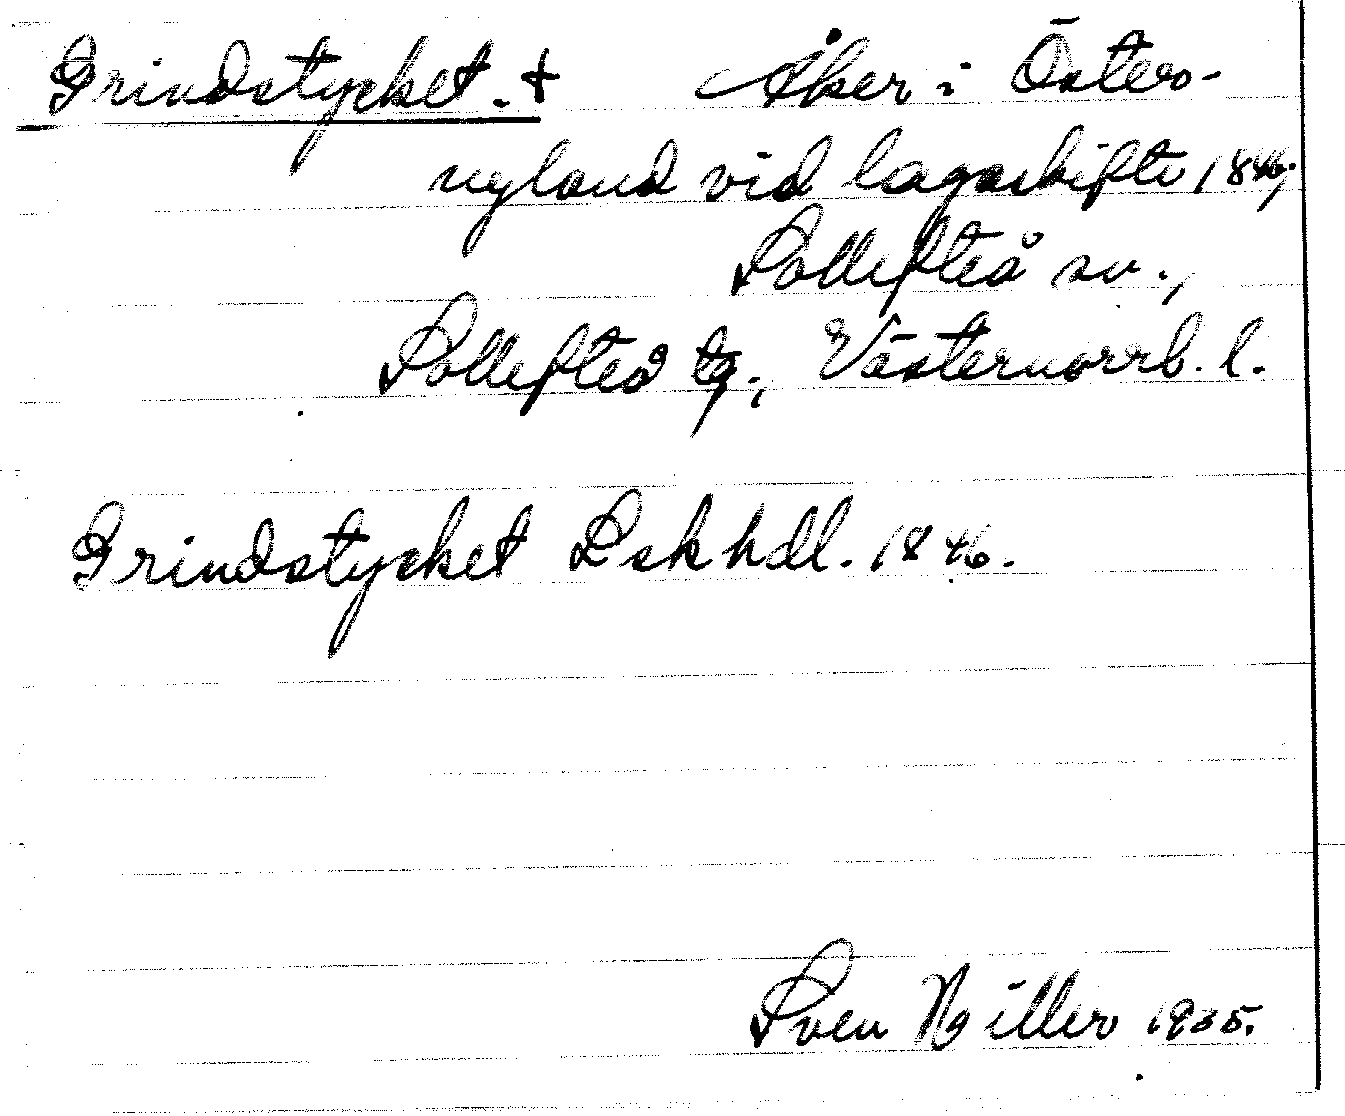 Grindstycket. † Åker i Öster-
nyland vid lagaskifte 1846,
Sollefteå sn.,
Sollefteå tg., Västernorrl. l.
Grindstycket Lskhdl. 1846.
Sven 1935.